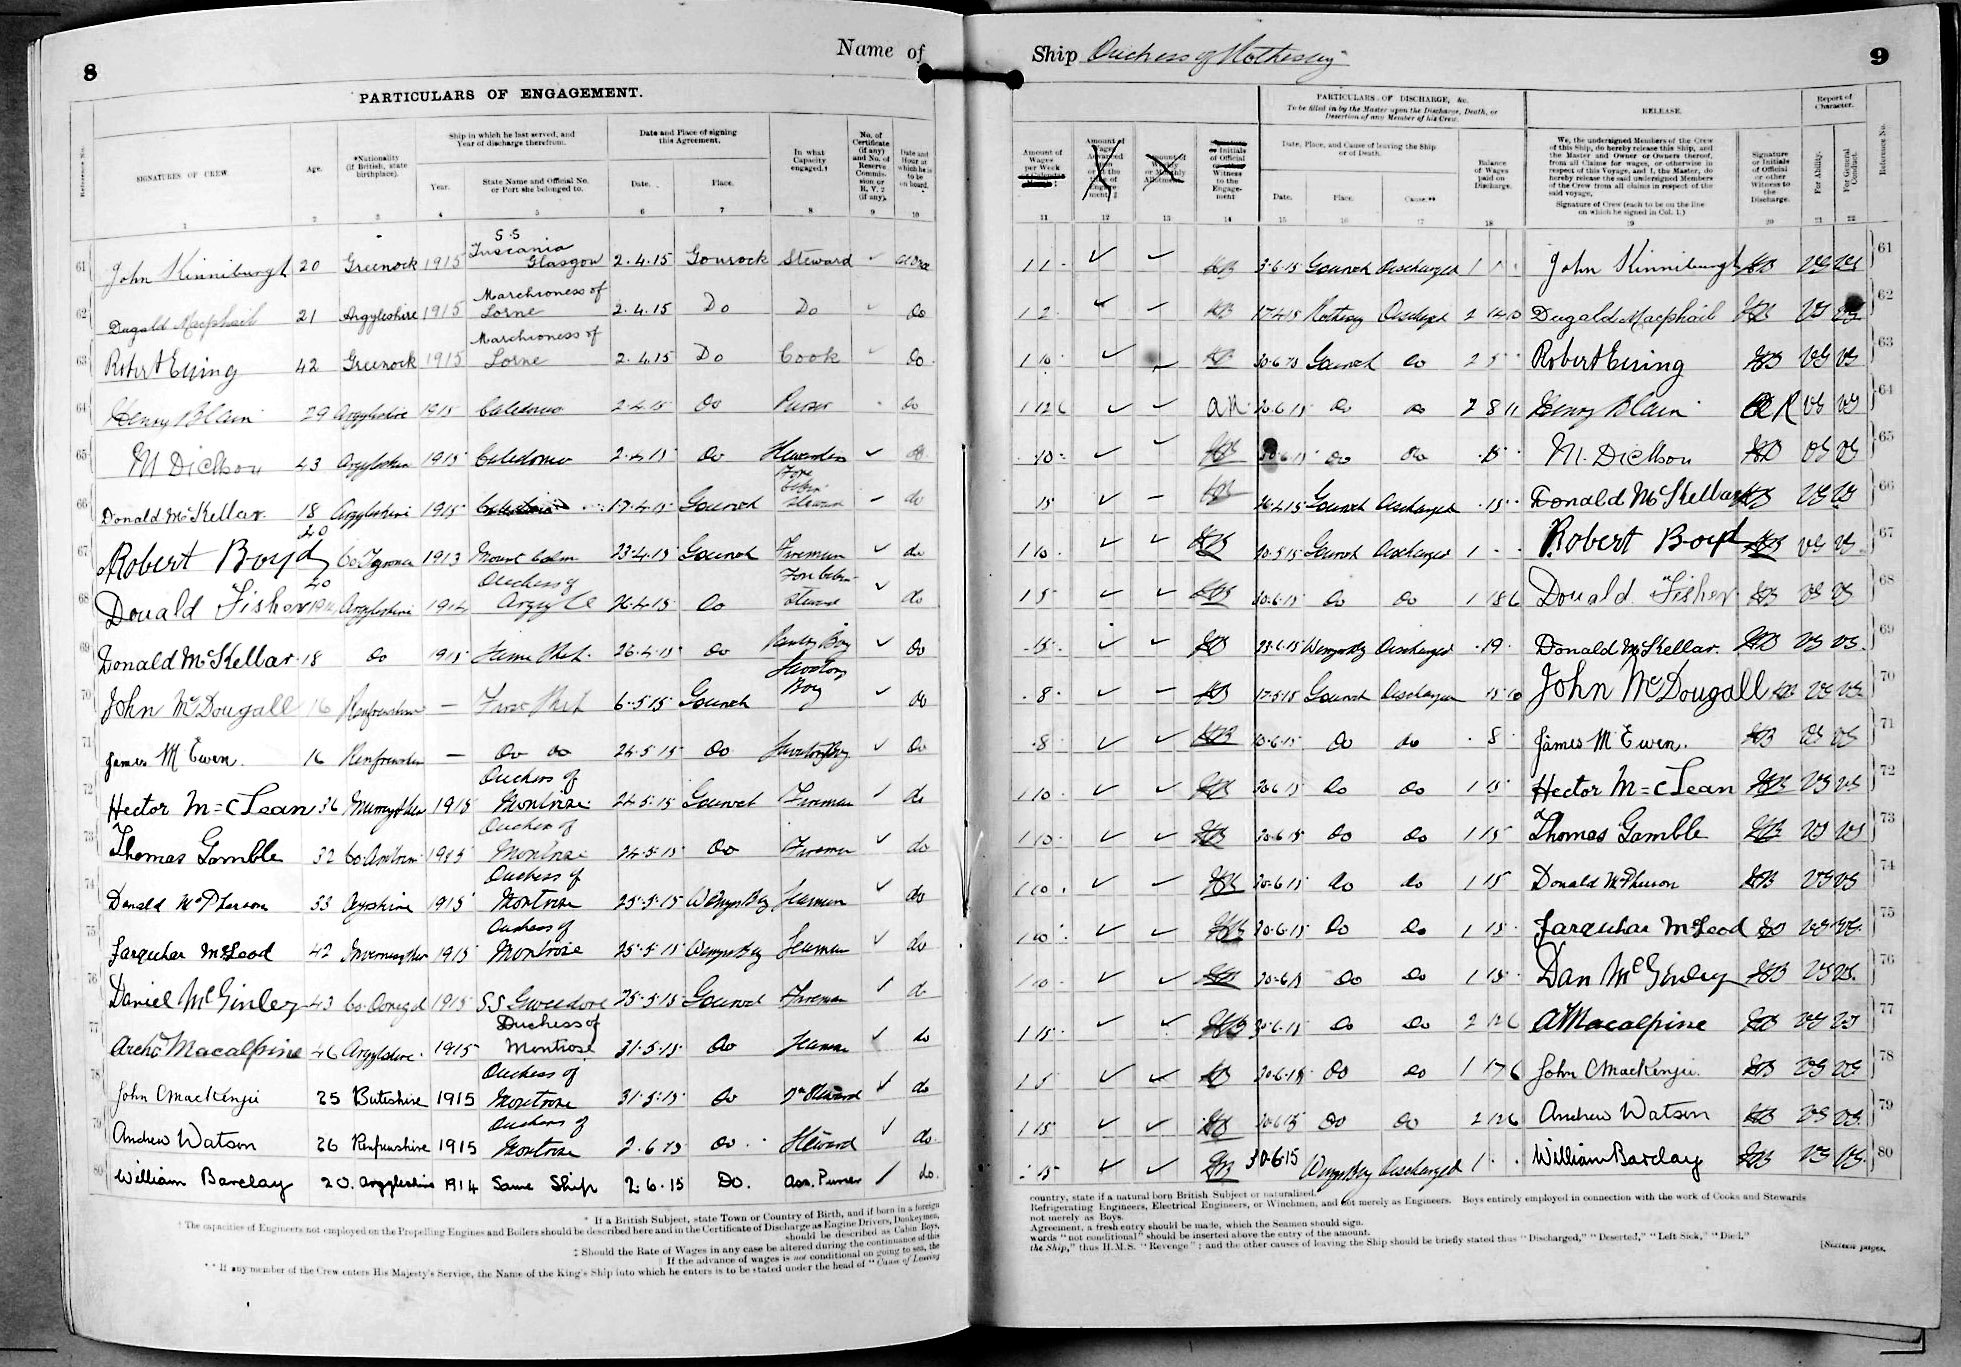 8
Name of
PARTICULARS OF ENGAGEMENT.
Reference No.
SIGNATURES OF CREW
Age.
*Nationality (if British, state birthplace).
Ship in which he last served, and Year of discharge therefrom.
Year.
State Name and Official No. or Port she belonged to.
Date and Place of signing this Agreement.
Date.
Place.
In what Capacity engaged.†
No. of Certificate (if any) and No. of Reserve Commission or R.V. 2 (if any).
Date and Hour at which he is to be on board.
1 2 3 4 5 6 7 8 9 10
61 John Kinniburgh 20 Greenock 1915 S.S Tuscania Glasgow 2.4.15 Gourock Steward ✓ at once
62 Dugald Macphail 21 Argyleshire 1915 Marchioness of Lorne 2.4.15 Do Do ✓ do
63 Robert Ewing 42 Greenock 1915 Marchioness of Lorne 2.4.15 Do Cook ✓ do
64 Henry Blain 29 Argyleshire 1915 Caledonia 2.4.15 do Purser do
65 M Dickson 43 Argyleshire 1915 Caledonia 2.4.15 do Stewardess ✓ do
66 Donald McKellar 18 Argyleshire 1915 17.4.15 Gourock Fore Cabin Steward ✓ do
67 Robert Boyd 20 Co Tyrone 1913 Mount 23.4.15 Gourock Fireman ✓ do
68 Donald Fisher 20 Argyleshire 1914 Duchess of Argyle 26.4.15 do Fore Cabin Steward ✓ do
69 Donald McKellar 18 do 1915 Same Ship 26.4.15 do Pantry Boy ✓ do
70 John McDougall 16 Renfrewshire — First Ship 6.5.15 Gourock Boy ✓ do
71 James McEwen. 16 Renfrewshire — do do 24.5.15 do Boy ✓ do
72 Hector McLean 36 1915 Duchess of Montrose 24.5.15 Gourock Fireman ✓ do
73 Thomas Gamble 32 Co Antrim 1915 Duchess of Montrose 24.5.15 do Fireman ✓ do
74 Donald McPherson 53 Ayrshire 1915 Duchess of Montrose 25.5.15 Wemyss Bay Seaman ✓ do
75 Farquhar McLeod 42 1915 Duchess of Montrose 25.5.15 Wemyss Bay Seaman ✓ do
76 Daniel McGinley 43 Co Donegal 1915 S.S Gweedore 25.5.15 Gourock Fireman ✓ do
77 Archd Macalpine 46 Argyleshire 1915 Duchess of Montrose 31.5.15 do Seaman ✓ do
78 John C Mackenzie 25 Buteshire 1915 Duchess of Montrose 31.5.15 do Steward ✓ do
79 Andrew Watson 26 Renfrewshire 1915 Duchess of Montrose 2.6.15 do Steward ✓ do
80 William Barclay 20. Argyleshire 1914 Same Ship 2.6.15 Do. Ass. Purser ✓ do
* If a British Subject, state Town or Country of Birth, and if born in a foreign
† The capacities of Engineers not employed on the Propelling Engines and Boilers should be described here and in the Certificate of Discharge as Engine Drivers, Donkeymen,
should be described as Cabin Boys,
‡ Should the Rate of Wages in any case be altered during the continuance of this
|| If the advance of wages is not conditional on going to sea, the
** If any member of the Crew enters His Majesty's Service, the Name of the King's Ship into which he enters is to be stated under the head of "Cause of Leaving
Ship Duchess of Rothesay
9
PARTICULARS OF DISCHARGE, &c.
To be filled in by the Master upon the Discharge, Death, or Desertion of any Member of his Crew.
RELEASE.
Report of Character.
Amount of Wages per Week
Initials of Official Witness to the Engagement
Date, Place, and Cause of leaving the Ship or of Death.
Date.
Place.
Cause.**
Balance of Wages paid on Discharge.
We, the undersigned Members of the Crew of this Ship, do hereby release this Ship, and the Master and Owner or Owners thereof, from all Claims for wages, or otherwise in respect of this Voyage, and I, the Master, do hereby release the said undersigned Members of the Crew from all claims in respect of the said voyage.
Signature of Crew (each to be on the line on which he signed in Col. 1.)
Signature or Initials of Official or other Witness to the Discharge.
For Ability.
For General Conduct.
Reference No.
11 12 13 14 15 16 17 18 19 20 21 22
1 1 ✓ ✓ 3.6.15 Gourock Discharged 1 John Kinniburgh VG VG 61
1 2 ✓ ✓ 17.4.15 Rothesay Discharged 2 Dugald Macphail VG VG 62
1 10 ✓ ✓ 30.6.15 Gourock do 2 5 Robert Ewing VG VG 63
1 12 6 ✓ ✓ AR 30.6.15 do do 2 8 11 Henry Blain AR VG VG 64
10 ✓ ✓ 30.6.15 do do 15 M. Dickson VG VG 65
15 ✓ – Gourock Discharged 15 Donald McKellar VG VG 66
1 10 ✓ ✓ Gourock Discharged 1 Robert Boyd VG VG 67
1 5 ✓ ✓ 30.6.15 do do 1 18 6 Donald Fisher VG VG 68
15 ✓ ✓ Wemyss Bay Discharged 19 Donald McKellar. VG VG 69
8 ✓ ✓ 17.5.15 Gourock Discharged 15 10 John McDougall VG VG 70
8 ✓ ✓ 30.6.15 do do 8 James McEwen. VG VG 71
1 10 ✓ ✓ 30.6.15 do do 1 15 Hector McLean VG VG 72
1 10 ✓ ✓ 30.6.15 do do 1 15 Thomas Gamble VG VG 73
1 10 ✓ ✓ 30.6.15 do do 1 15 Donald McPherson VG VG 74
1 10 ✓ ✓ 30.6.15 do do 1 15 Farquhar McLeod VG VG 75
1 10 ✓ ✓ 30.6.15 do do 1 15 Dan McGinley VG VG 76
1 15 ✓ ✓ 30.6.15 do do 2 12 6 A Macalpine VG VG 77
1 5 ✓ ✓ 30.6.15 do do 1 17 6 John C Mackenzie VG VG 78
1 15 ✓ ✓ 30.6.15 do do 2 12 6 Andrew Watson VG VG 79
15 ✓ ✓ 30.6.15 Wemyss Bay Discharged 1 William Barclay VG VG 80
country, state if a natural born British Subject or naturalized.
Refrigerating Engineers, Electrical Engineers, or Winchmen, and not merely as Engineers. Boys entirely employed in connection with the work of Cooks and Stewards
not merely as Boys.
Agreement, a fresh entry should be made, which the Seamen should sign.
words "not conditional" should be inserted above the entry of the amount.
the Ship," thus H.M.S. "Revenge"; and the other causes of leaving the Ship should be briefly stated thus "Discharged," "Deserted," "Left Sick," "Died."
[Sixteen pages.